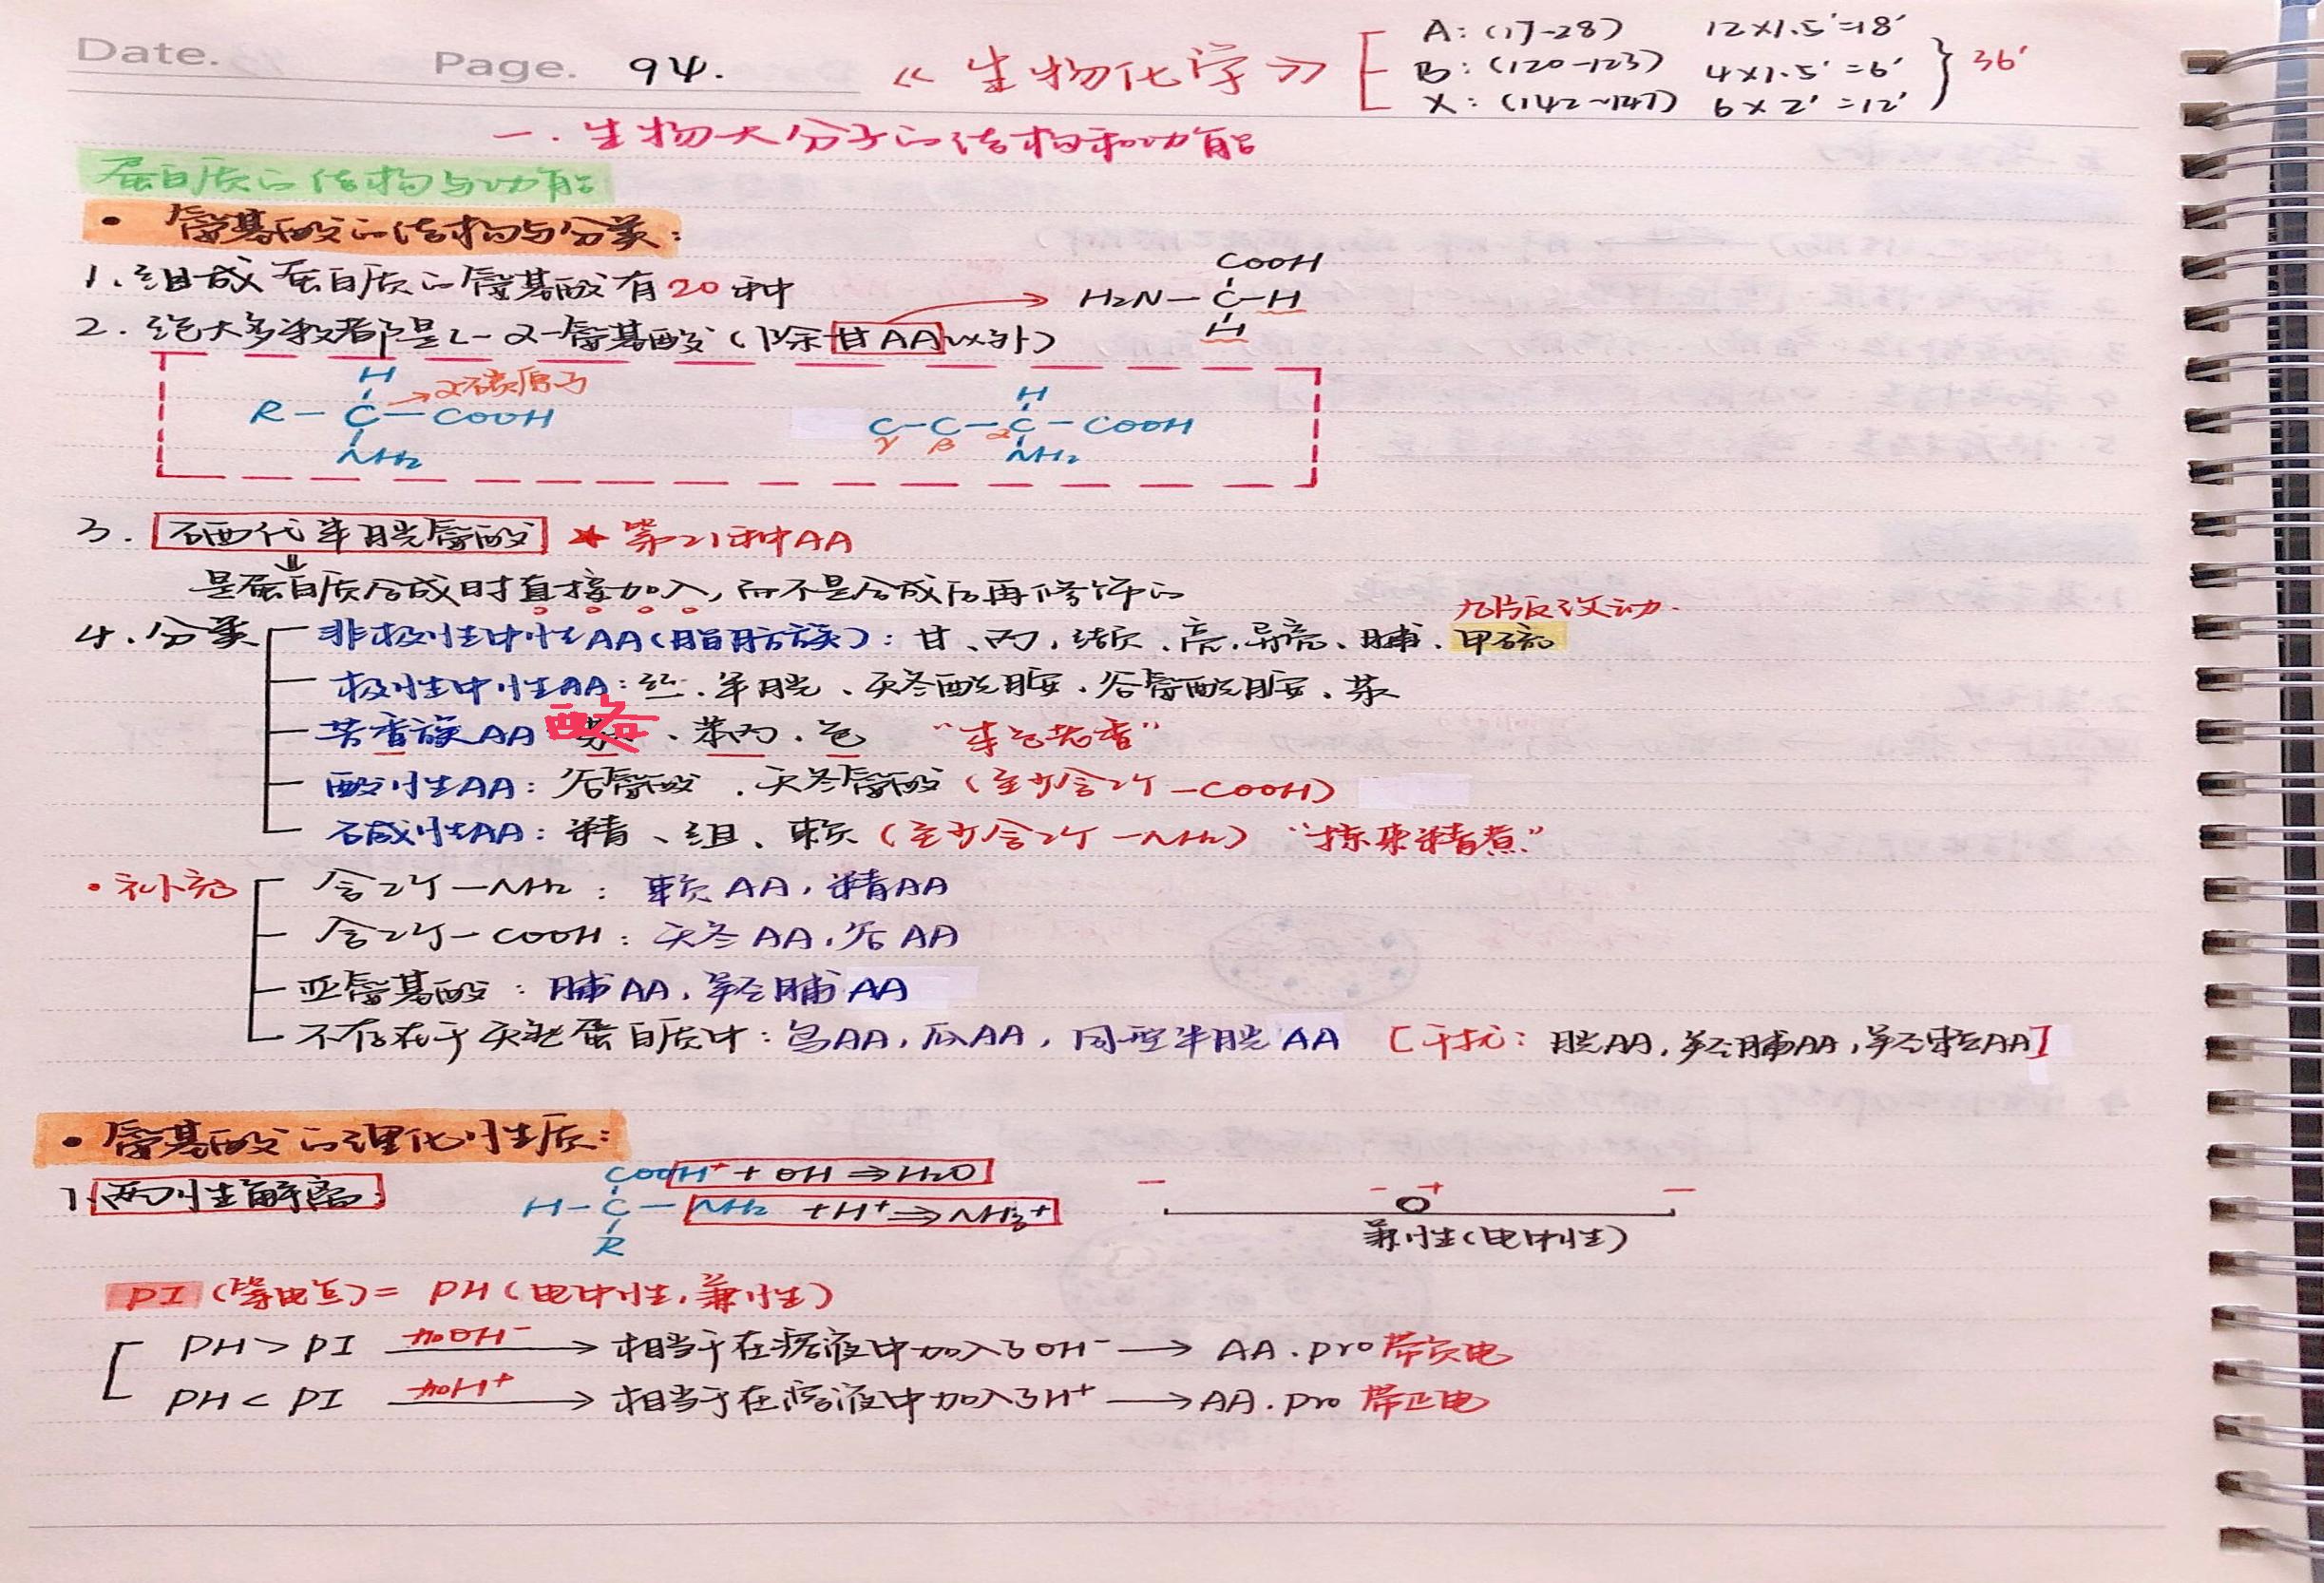 Date.
Page. 94.
《生物化学》
A: (17-28) 12×1.5'=18'
B: (120-123) 4×1.5'=6'
X: (142~147) 6×2'=12'
36'
一.生物大分子的结构和功能
蛋白质的结构与功能
• 氨基酸的结构与分类:
1.组成蛋白质的氨基酸有20种
2.绝大多数都是L-α-氨基酸(除甘AA以外)
COOH
H2N-C-H
H
H
R-C-COOH
NH2
→α碳原子
H
C-C-C-COOH
γ β α
NH2
3. 硒代半胱氨酸 ★第21种AA
是蛋白质合成时直接加入,而不是合成后再修饰的
4.分类
九版改动.
非极性中性AA(脂肪族):甘、丙,缬、亮,异亮、脯、甲硫
极性中性AA:丝、半胱、天冬酰胺、谷氨酰胺、苏
芳香族AA 酪、苯丙、色 "本色芳香"
酸性AA:谷氨酸、天冬氨酸(至少含2个-COOH)
碱性AA:精、组、赖(至少含2个-NH2) "拣来精煮"
•补充
含2个-NH2:赖AA,精AA
含2个-COOH:天冬AA,谷AA
亚氨基酸:脯AA,羟脯AA
不存在于天然蛋白质中:鸟AA,瓜AA,同型半胱AA [干扰:胱AA,羟脯AA,羟赖AA]
•氨基酸的理化性质:
1.两性解离:
COOH⁺+OH⇒H2O
H-C-NH2 +H⁺⇒NH3⁺
R
- - + -
兼性(电中性)
PI(等电点)=PH(电中性,兼性)
PH>PI 加OH⁻ → 相当于在溶液中加入了OH⁻ → AA.pro带负电
PH<PI 加H⁺ → 相当于在溶液中加入了H⁺ → AA.pro 带正电